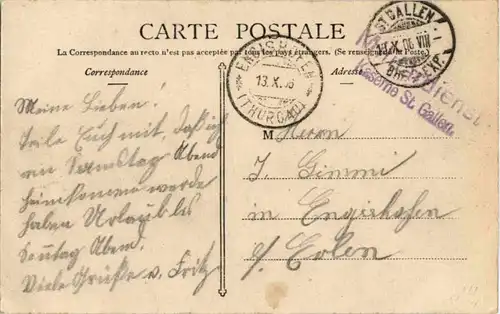 CARTE POSTALE
La Correspondance au recto n'est pas acceptée par tous les pays étrangers. (Se renseigner à la Poste)
Correspondance
Adresse
ST GALLEN
13.X.06 VIII
BRF. EXP.
ENGISHOFEN
13.X.06
(THURGAU)
Kaserne St. Gallen.
Meine Lieben!
Teile Euch mit, daß ich
am Samstag Abend
heimkommen werde
haben Urlaub bis
Sonntag Abend.
Viele Grüße v. Fritz
M
Herrn
J. Gimmi
in Engishofen
b/ Erlen